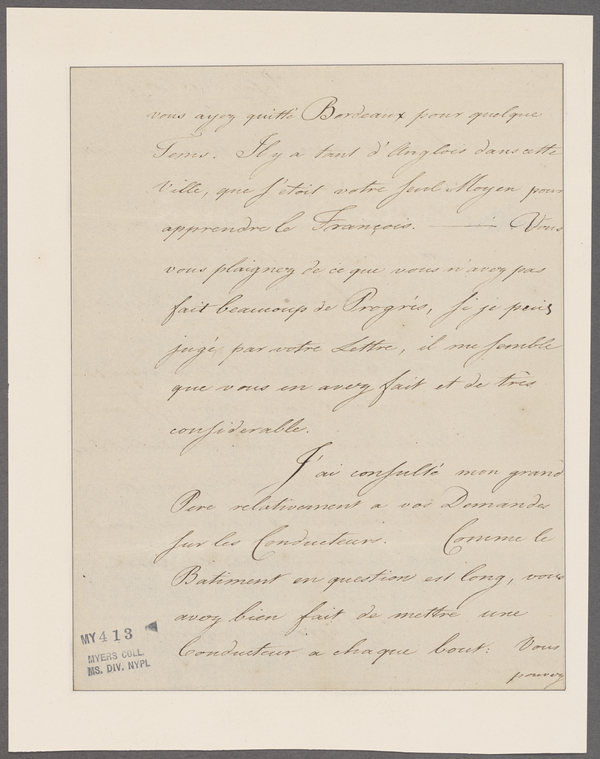 vous ayez quitté Bordeaux pour quelque
Tems. Il y a tant d'Anglois dans cette
Ville, que s'étoit votre seul Moyen pour
apprendre le François. — Vous
vous plaignez de ce que vous n'avez pas
fait beaucoup de Progrés, si je puis
jugé par votre Lettre, il me semble
que vous en avez fait et de très
considerable.
J'ai consulté mon grand
Pere relativement a vos Demandes
sur les Conducteurs. Comme le
Batiment en question est long, vous
avez bien fait de mettre une
Conducteur a chaque bout: Vous
pouvez
MY 413
MYERS COLL.
MS. DIV. NYPL